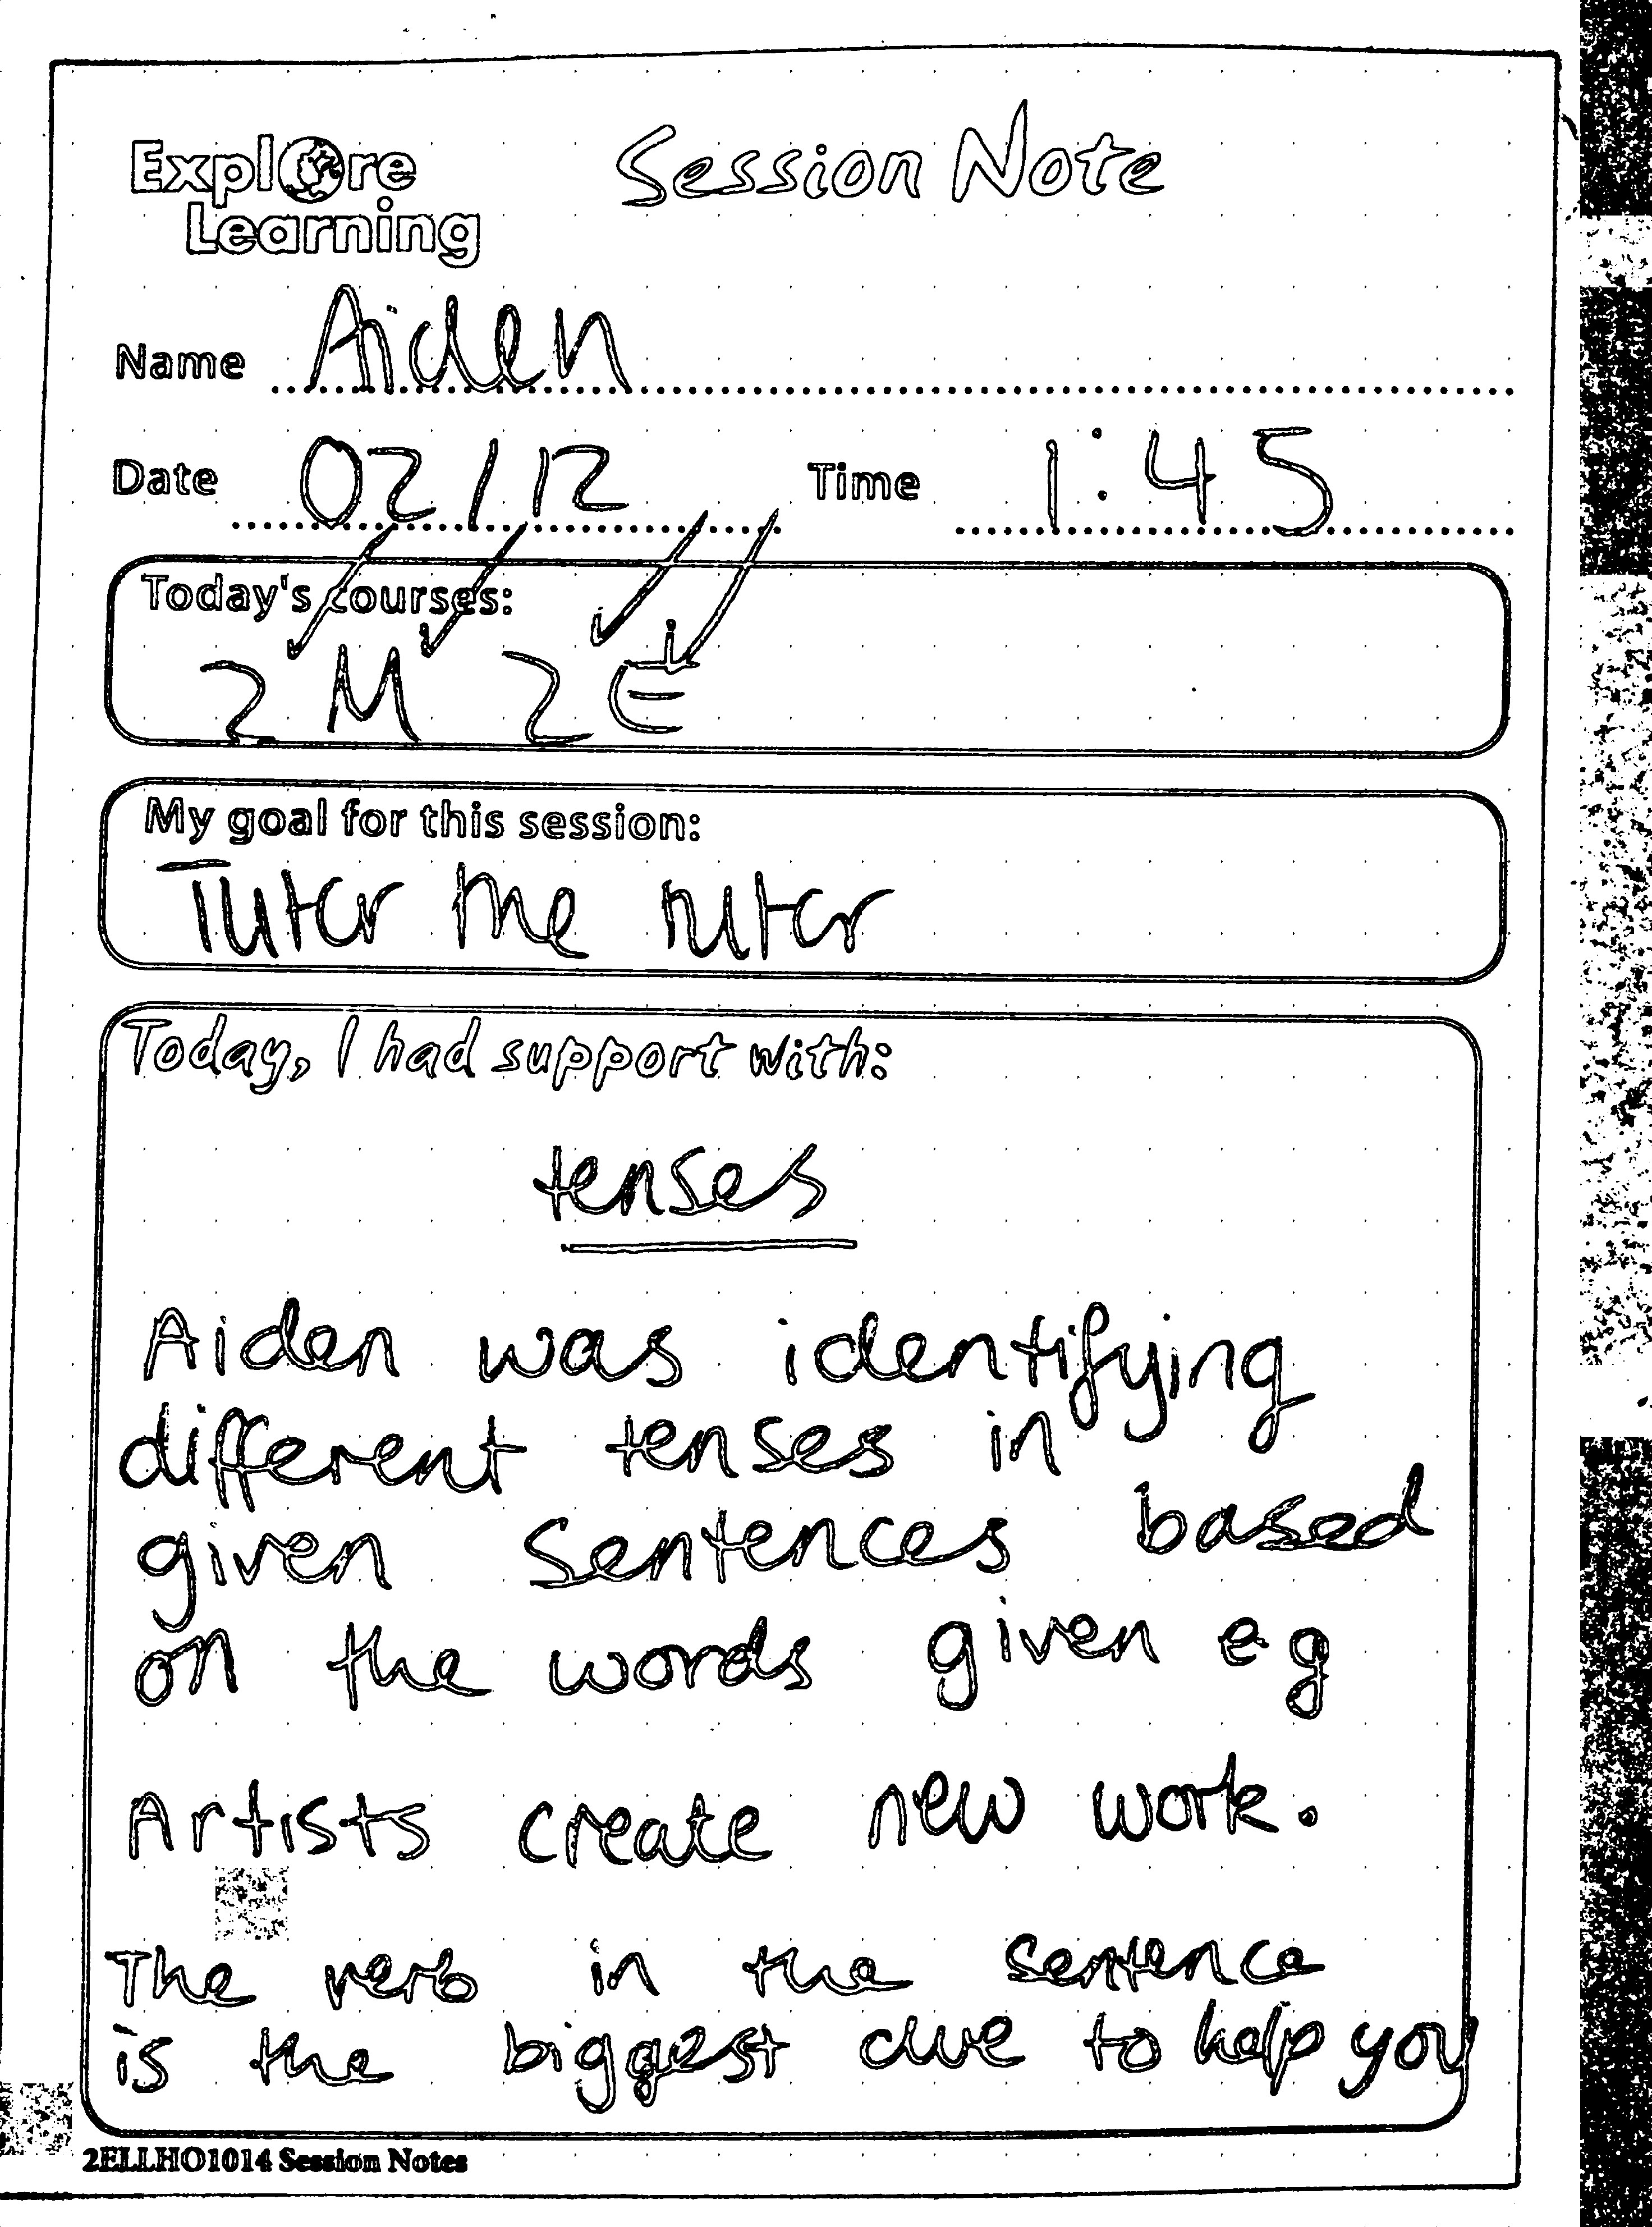 Explore
Learning
Session Note
Name Aiden
Date 02/12 Time 1:45
Today's courses:
2 M 2E
My goal for this session:
Tutor the tutor
Today, I had support with:
tenses
Aiden was identifying
different tenses in
given sentences based
on the words given eg
Artists create new work.
The verb in the sentence
is the biggest clue to help you
2ELLHO1014 Session Notes